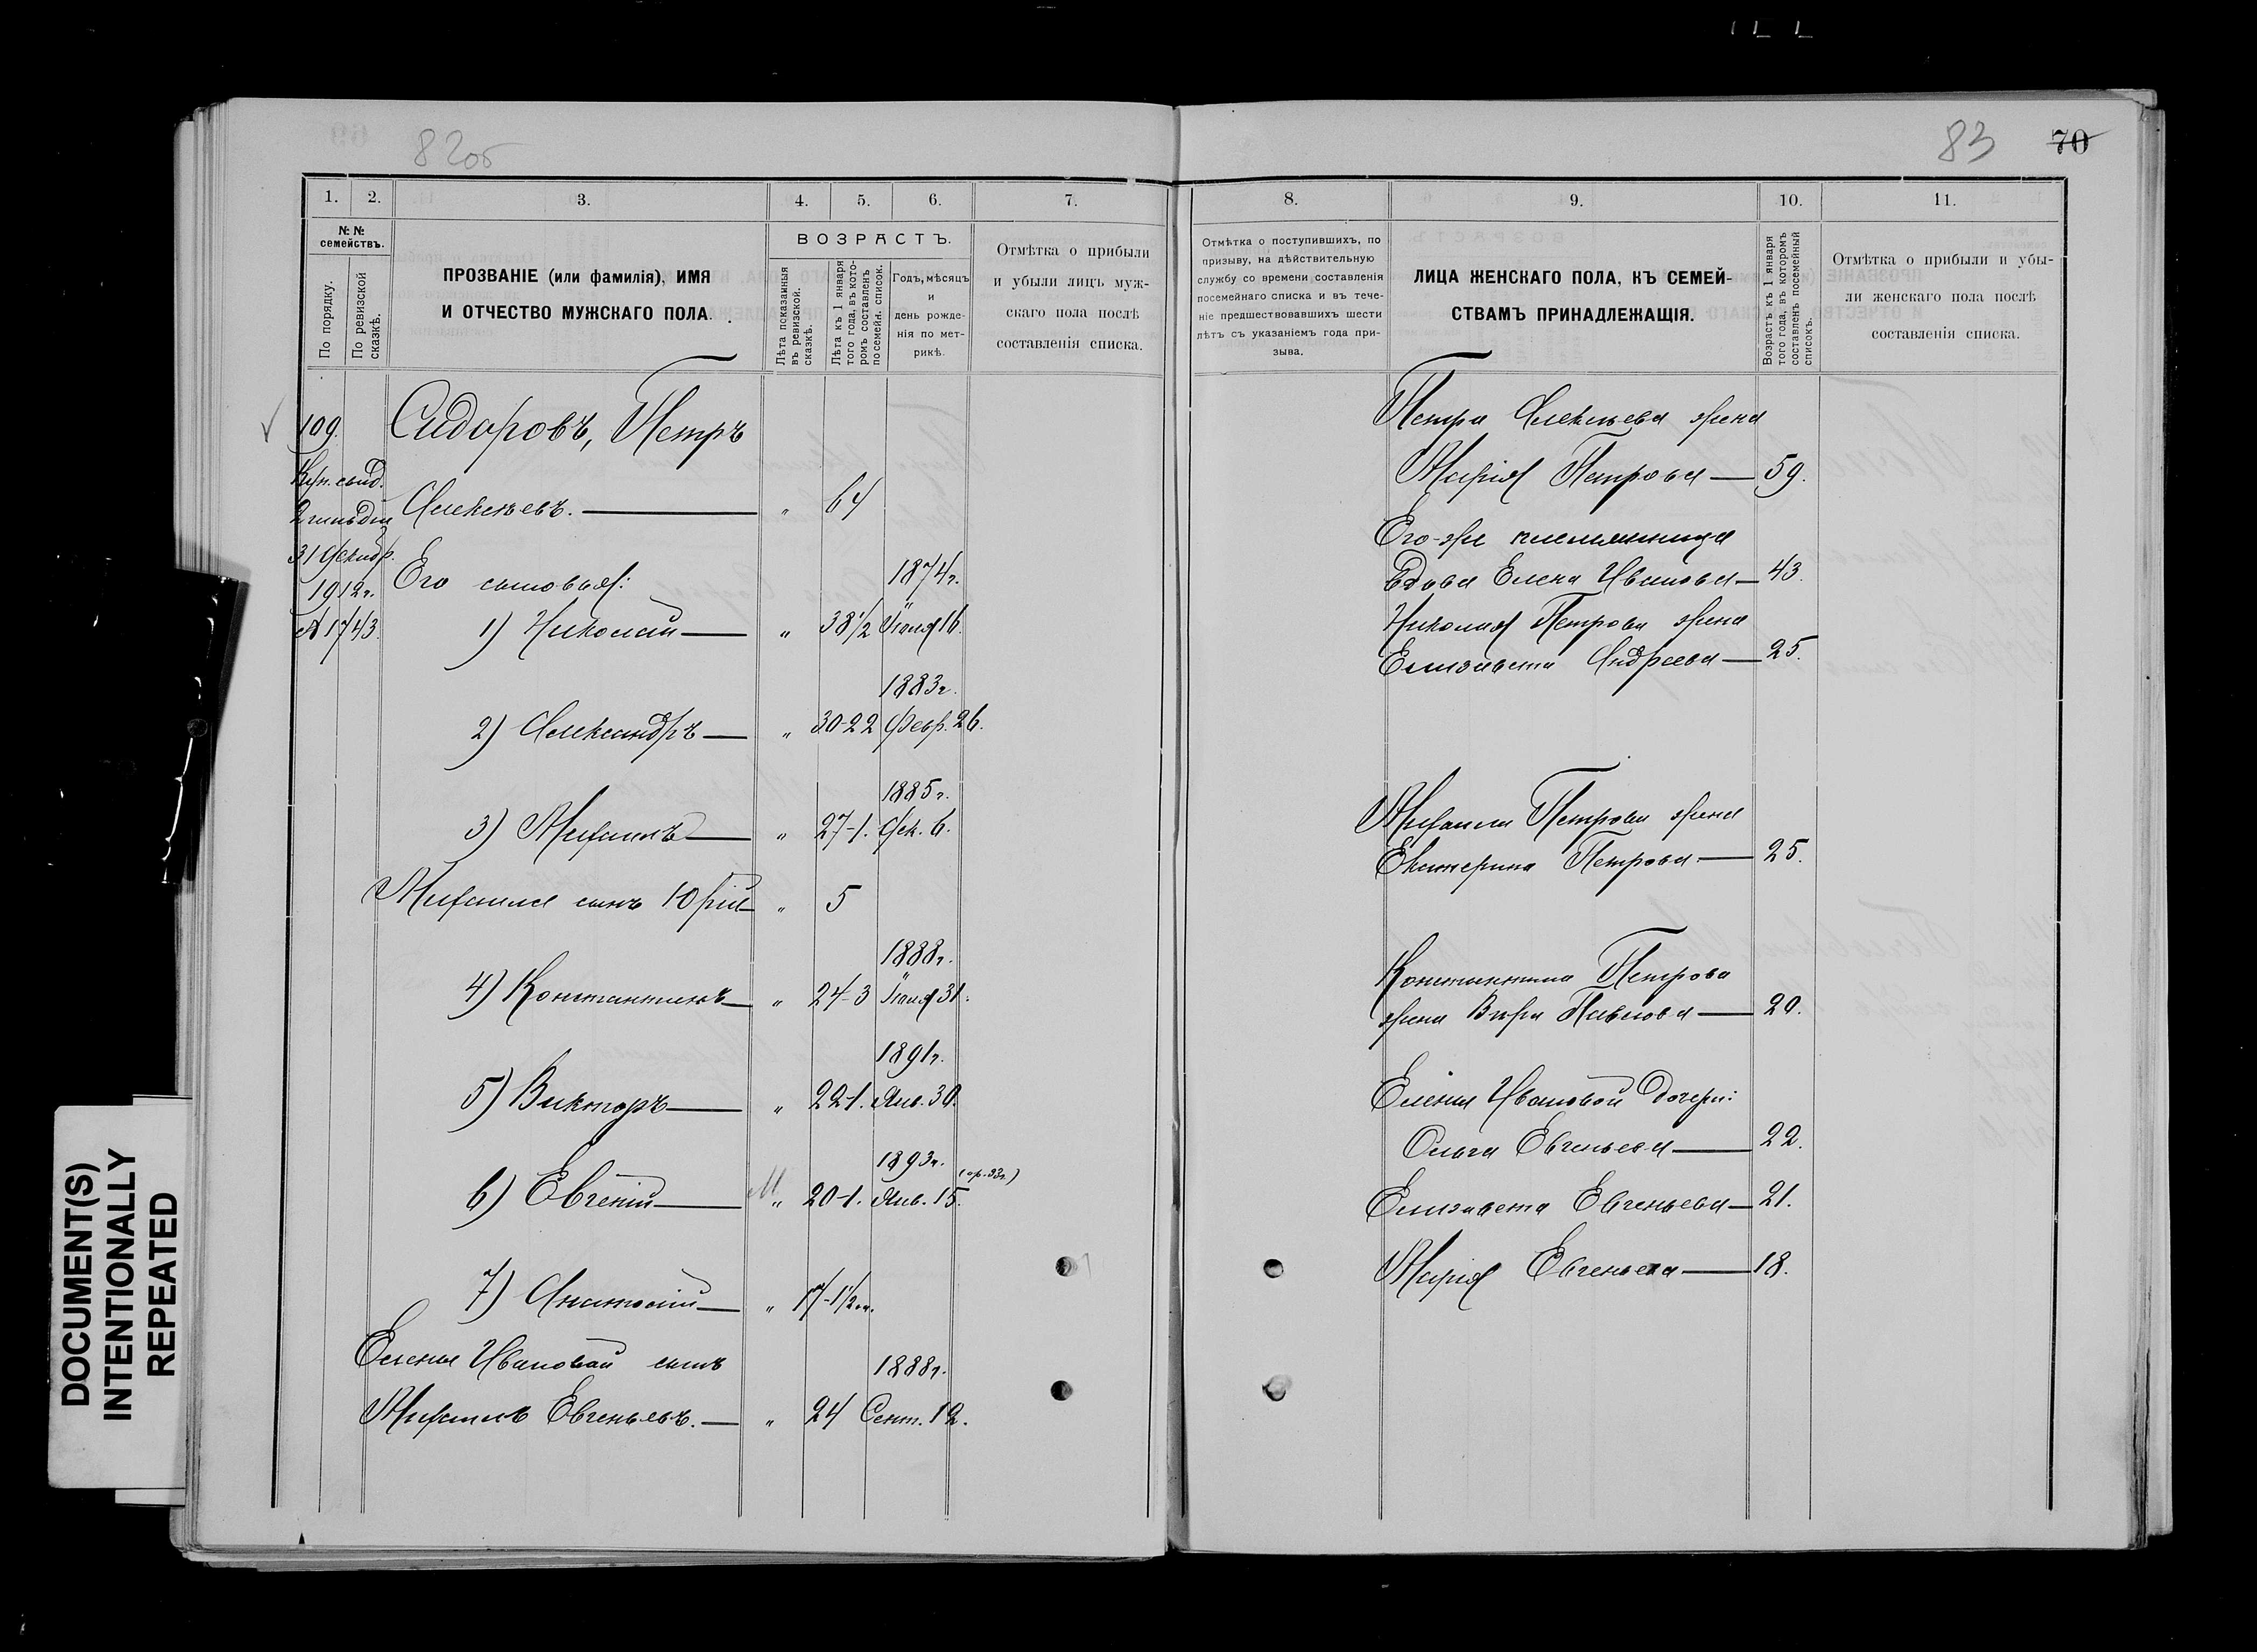 82об
83 70
1. 2. 3. 4. 5. 6. 7.
№ №
семействъ.
По порядку.
По ревизской сказкѣ.
ПРОЗВАНІЕ (или фамилія), ИМЯ
И ОТЧЕСТВО МУЖСКАГО ПОЛА.
ВОЗРАСТЪ.
Лѣта показанныя въ ревизской сказкѣ.
Лѣта къ 1 января того года, въ которомъ составленъ посемейн. список.
Годъ, мѣсяцъ
и
день рожде-
нія по мет-
рикѣ.
Отмѣтка о прибыли
и убыли лицъ муж-
скаго пола послѣ
составленія списка.
109. Сидоровъ, Петръ
Куп. свид.
2 гильдіи Алексѣевъ. — " 64
31 Декабр.
1912 г. Его сыновья: 1874 г.
№ 1743. 1) Николай — " 38½ Іюля 16.
1883 г.
2) Александръ — " 30-22 Февр. 26.
1885 г.
3) Михаилъ — " 27-1. Дек. 6.
Михаила сынъ Юрій — " 5
1888 г.
4) Константинъ — " 24-3 Іюля 31.
1891 г.
5) Викторъ — " 22-1. Янв. 30.
1893 г.
6) Евгеній — " 20-1. Янв. 15.
7) Анатолій — " 17-1½ м.
Елены Ивановой сынъ 1888 г.
Михаилъ Евгеньевъ. — " 24 Сент. 12.
8. 9. 10. 11.
Отмѣтка о поступившихъ, по
призыву, на дѣйствительную
службу со времени составленія
посемейнаго списка и въ тече-
ніе предшествовавшихъ шести
лѣтъ съ указаніемъ года при-
зыва.
ЛИЦА ЖЕНСКАГО ПОЛА, КЪ СЕМЕЙ-
СТВАМЪ ПРИНАДЛЕЖАЩІЯ.
Возрастъ къ 1 января того года, въ которомъ составленъ посемейный списокъ.
Отмѣтка о прибыли и убы-
ли женскаго пола послѣ
составленія списка.
Петра Алексѣева жена
Марія Петрова — 59.
Его-же племянница
вдова Елена Иванова — 43.
Николая Петрова жена
Елизавета Андреева — 25.
Михаила Петрова жена
Екатерина Петрова. — 25.
Константина Петрова
жена Вѣра Павлова — 20.
Елены Ивановой дочери:
Ольга Евгеньева — 22.
Елизавета Евгеньева — 21.
Марія Евгеньева — 18.
DOCUMENT(S)
INTENTIONALLY
REPEATED